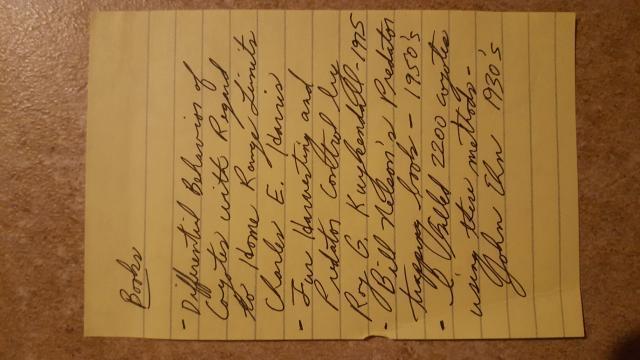 Books
- Differential Behavior of
Coyotes with Regard
to Home Range Limits
Charles E. Harris
- Fur Harvesting and
Predator Control by
Roy G. Kuykendall - 1975
- Bill Nelson's Predator
trapping book - 1950's
- I Called 2200 coyotes
using these methods -
John Ehn 1930's